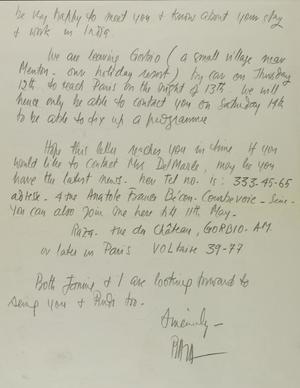 be very happy to meet you & know about your stay
& work in India.
We are leaving Gorbio (a small village near
Menton - our holiday resort) by car on Thursday
12th to reach Paris on the night of 13th. We will
hence only be able to contact you on Saturday 14th
to be able to fix up a programme
Hope this letter reaches you in time if you
would like to contact Mrs DelMarle, may be you
have the latest news. Her Tel no. is: 333.45-65
adrese - 4 rue Anatole France Bécon-Courbevoie - Seine -
You can also join me here till 11th May -
Raza. rue du Château, GORBIO. A.M.
or later in Paris VOLTAIRE 39-77
Both Janine & I are looking forward to
seeing you & too.
Sincerely -
RAZA